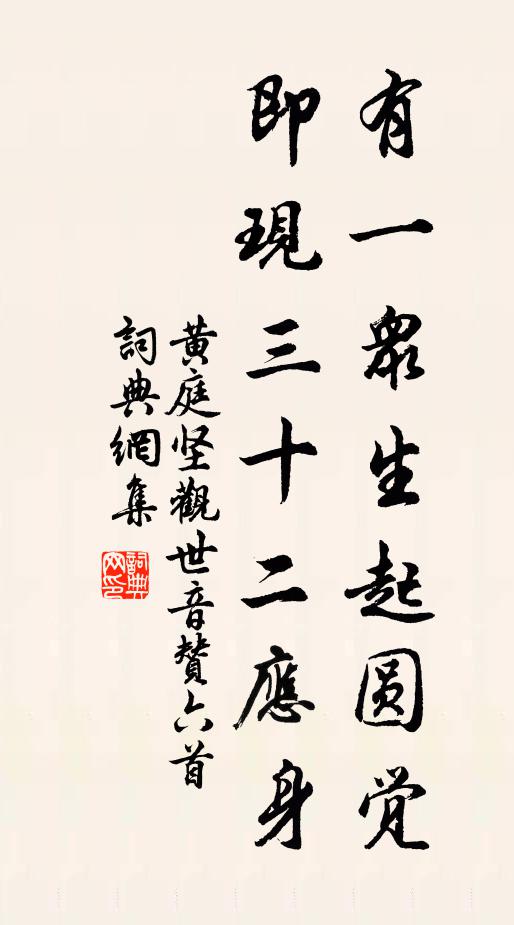 有一衆生起圆觉
即現三十二應身
黄庭坚觀世音贊六首
詞典網集
詞典
网印